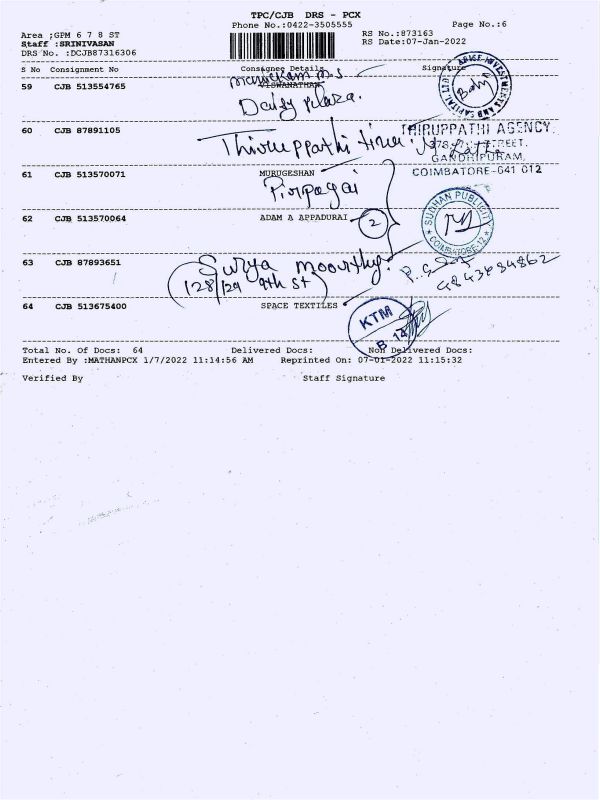 TPC/CJB DRS - PCX
Phone No.:0422-3505555
Page No.:6
Area ;GPM 6 7 8 ST
RS No.:873163
Staff :SRINIVASAN
RS Date:07-Jan-2022
DRS No. :DCJB87316306
S No Consignment No Consignee Details Signature
manickam m.s
59 CJB 513554765 VISWANATHAN
Daisy plaza.
ARISE INVESTMENTS AND CAPITAL LTD
60 CJB 87891105
Thiruppathi
THIRUPPATHI AGENCY
STREET,
GANDHIPURAM,
COIMBATORE-641 012
61 CJB 513570071 MURUGESHAN
62 CJB 513570064 ADAM A APPADURAI 2
SUDHAN PUBLICITY
COIMBATORE-12
63 CJB 87893651 Surya moorthy.
(128/129 9th st)
9843634862
64 CJB 513675400 SPACE TEXTILES
KTM
B 14
Total No. Of Docs: 64 Delivered Docs: Non Delivered Docs:
Entered By :MATHANPCX 1/7/2022 11:14:56 AM Reprinted On: 07-01-2022 11:15:32
Verified By Staff Signature